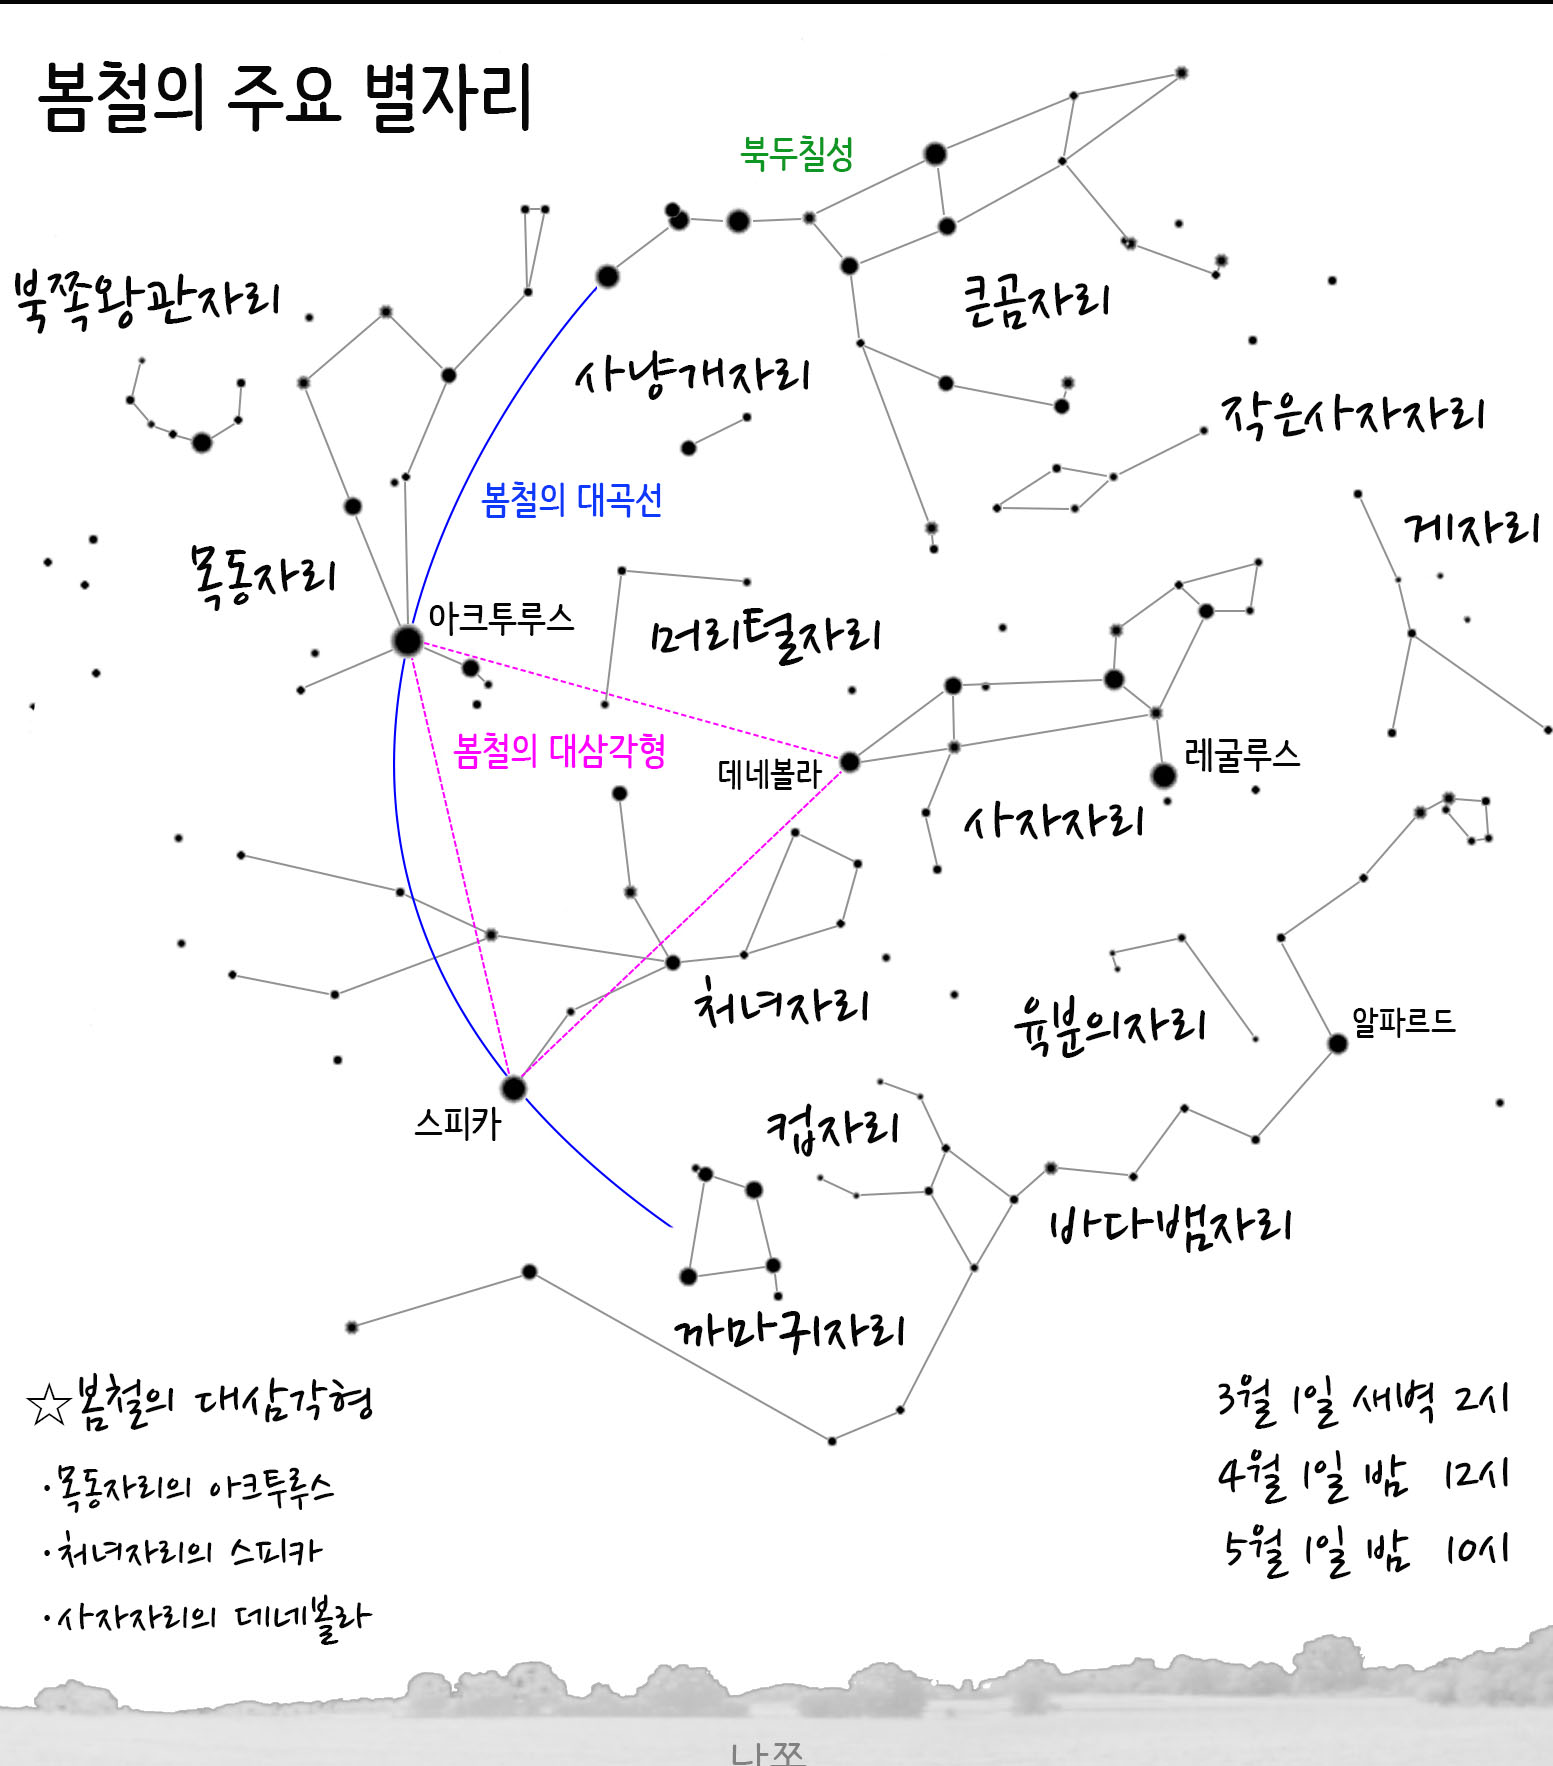 봄철의 주요 별자리
북두칠성
북쪽왕관자리
큰곰자리
사냥개자리
작은사자자리
봄철의 대곡선
게자리
목동자리
아크투루스
머리털자리
봄철의 대삼각형
데네볼라
레굴루스
사자자리
처녀자리
육분의자리
알파르드
스피카
컵자리
바다뱀자리
까마귀자리
☆봄철의 대삼각형
·목동자리의 아크투루스
·처녀자리의 스피카
·사자자리의 데네볼라
3월 1일 새벽 2시
4월 1일 밤 12시
5월 1일 밤 10시
남쪽